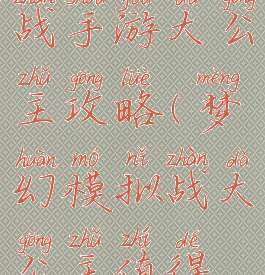 zhàn shǒu yóu dà gōng
战手游大公
zhǔ gōng lüè mèng
主攻略(梦
huàn mó nǐ zhàn dà
幻模拟战大
gōng zhǔ zhí dé
公主值得